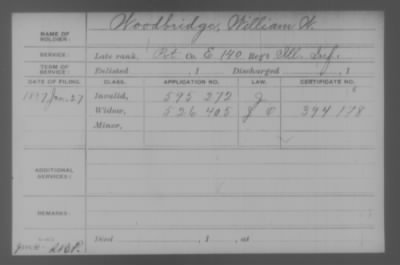 NAME OF SOLDIER: Woodbridge, William W.
SERVICE: Late rank, Pvt Co. E 140 Reg't Ill. Inf.
TERM OF SERVICE: Enlisted , 1 Discharged , 1
DATE OF FILING. CLASS. APPLICATION NO. LAW. CERTIFICATE NO.
Jan. 27 Invalid, 595 272 J
Widow, 526 405 394 178
Minor,
ADDITIONAL SERVICES:
REMARKS:
Died , 1 , at